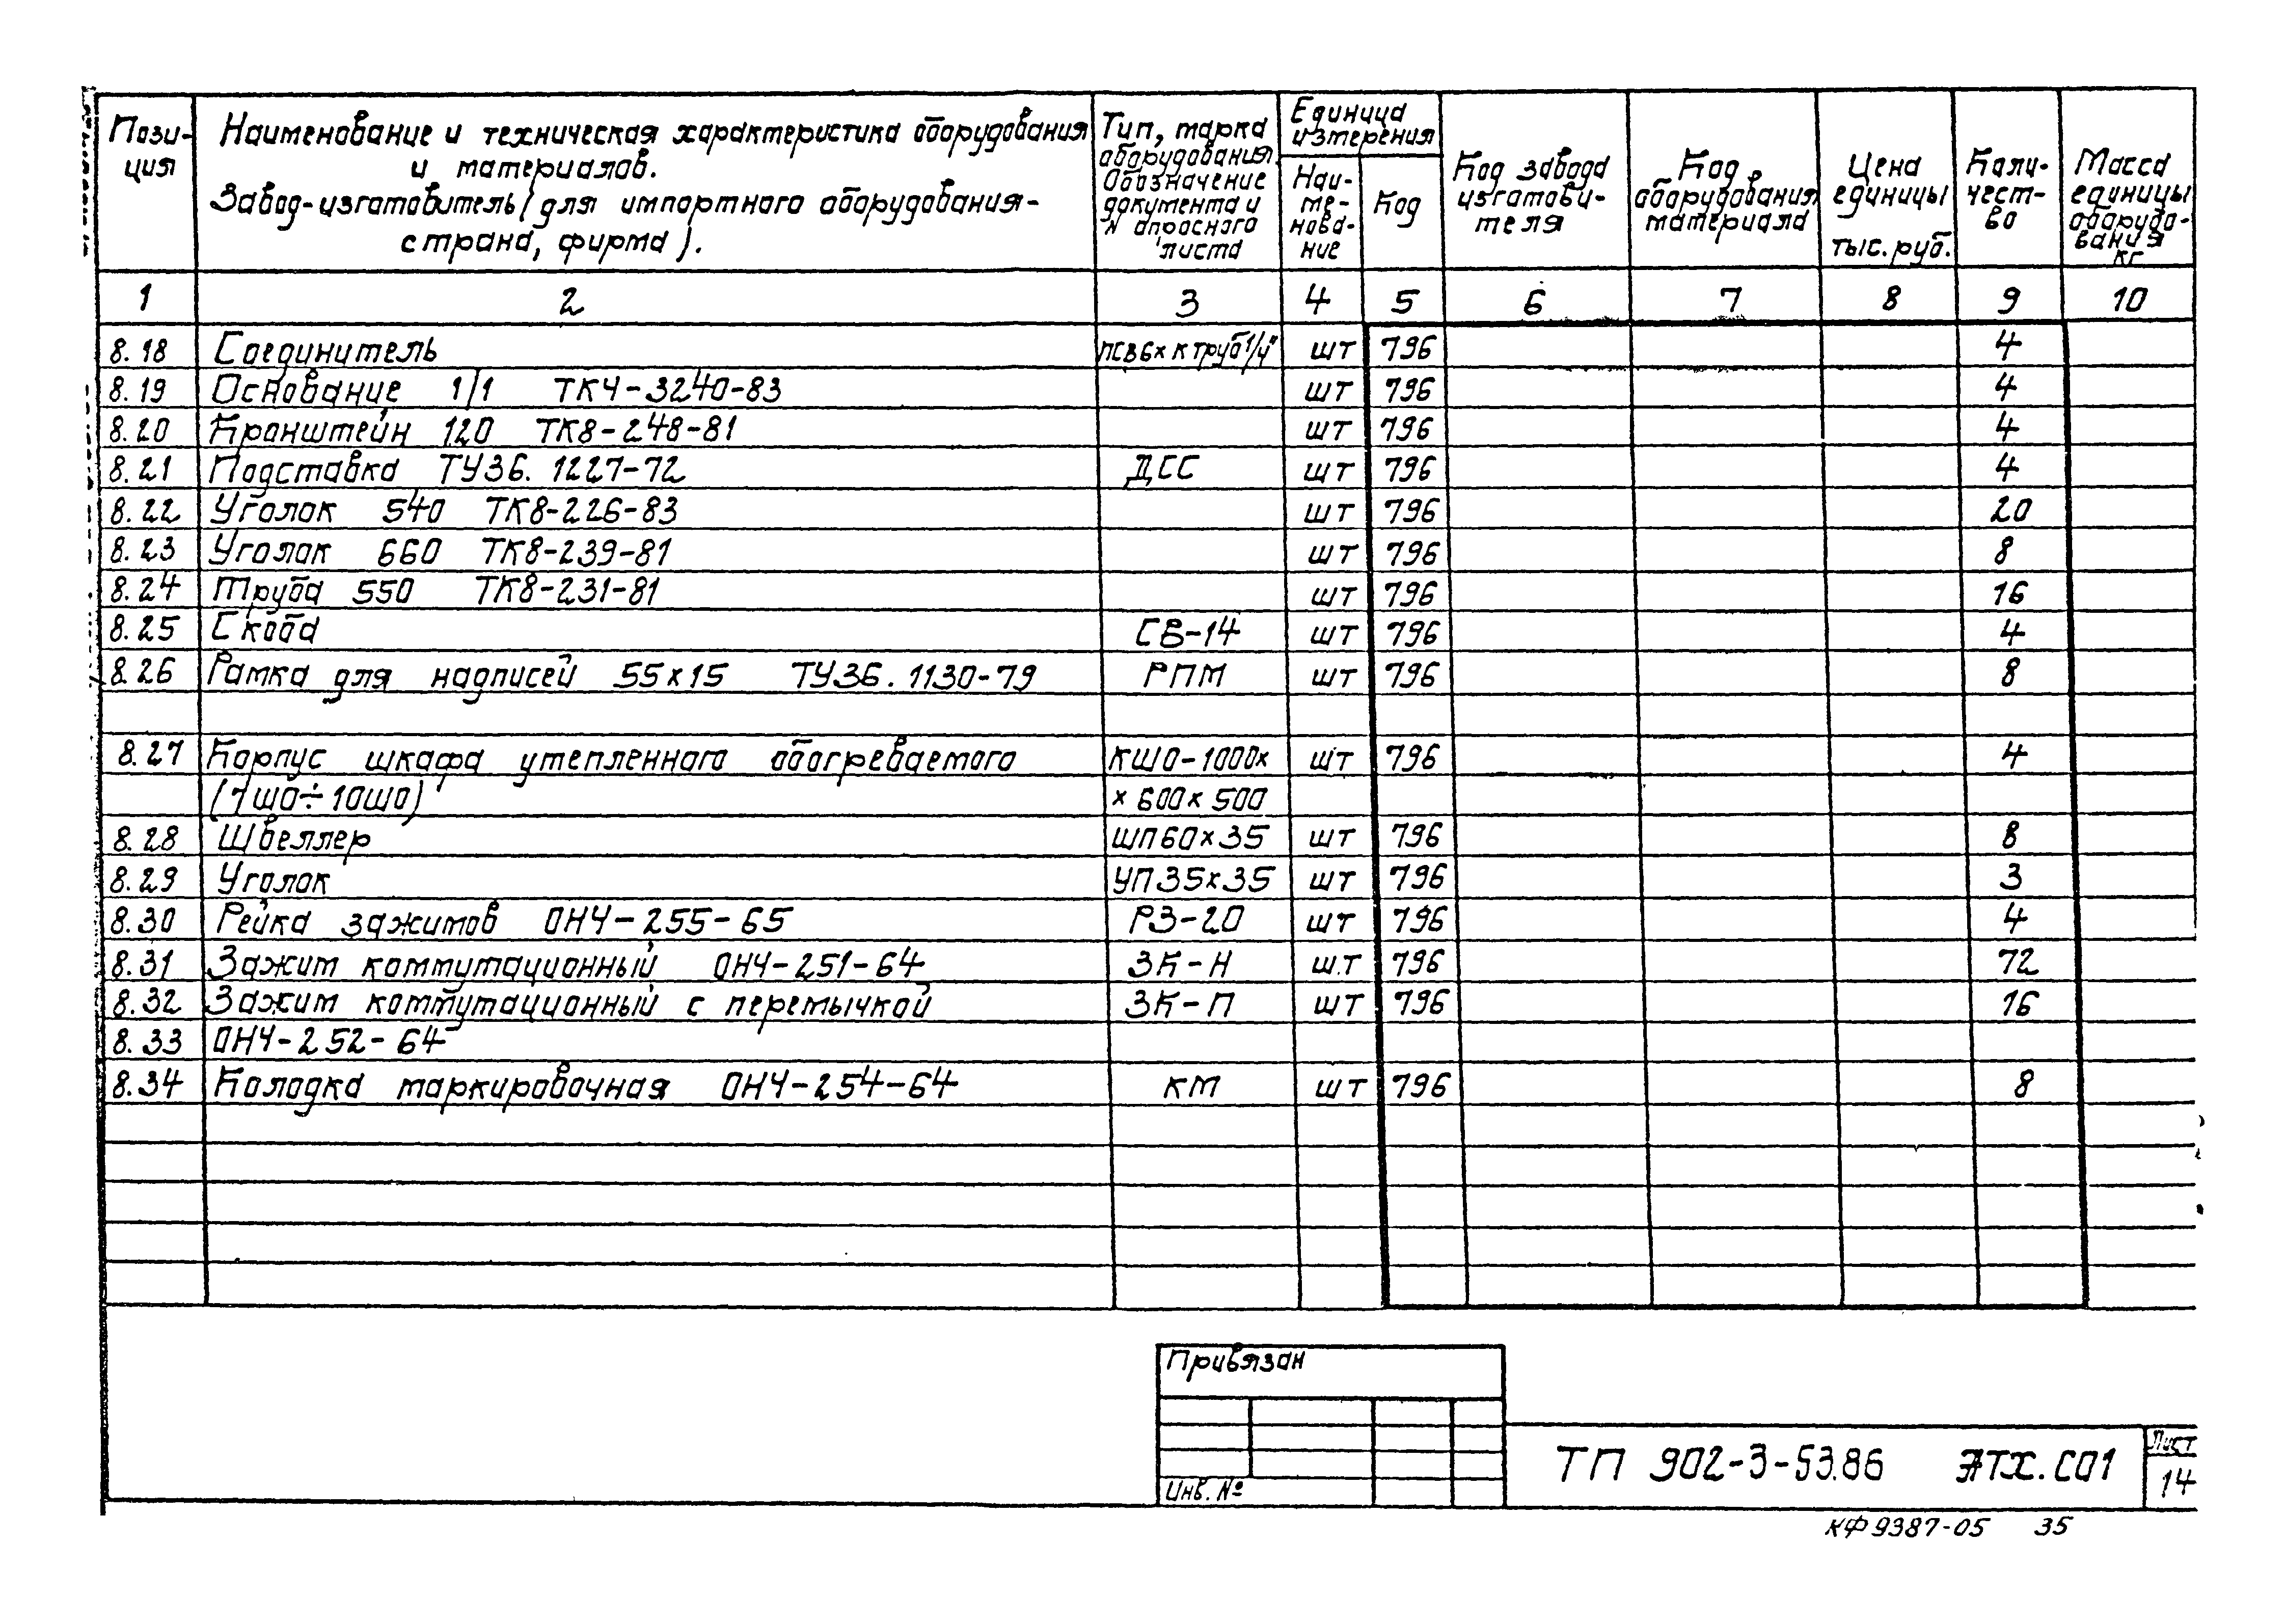 Пози-
ция
Наименование и техническая характеристика оборудования
и материалов.
Завод-изготовитель (для импортного оборудования-
страна, фирма).
Тип, марка
оборудования.
Обозначение
документа и
N опросного
листа
Единица
измерения
Наи-
ме-
нова-
ние
Код
Код завода
изготови-
теля
Код
оборудования
материала
Цена
единицы
тыс. руб.
Коли-
чест-
во
Масса
единицы
оборудо-
вания
кг
1 2 3 4 5 6 7 8 9 10
8.18 Соединитель ПСВ6х К труб 1/4" шт 796 4
8.19 Основание 1/1 ТК4-3240-83 шт 796 4
8.20 Кронштейн 120 ТК8-248-81 шт 796 4
8.21 Подставка ТУ36.1227-72 ДСС шт 796 4
8.22 Уголок 540 ТК8-226-83 шт 796 20
8.23 Уголок 660 ТК8-239-81 шт 796 8
8.24 Труба 550 ТК8-231-81 шт 796 16
8.25 Скоба СВ-14 шт 796 4
8.26 Рамка для надписей 55х15 ТУ36.1130-79 РПМ шт 796 8
8.27 Корпус шкафа утепленного обогреваемого КШО-1000х шт 796 4
(7ШО÷10ШО) х 600х 500
8.28 Швеллер ШП60х35 шт 796 8
8.29 Уголок УП35х35 шт 796 3
8.30 Рейка зажимов ОН4-255-65 РЗ-20 шт 796 4
8.31 Зажим коммутационный ОН4-251-64 ЗК-Н шт 796 72
8.32 Зажим коммутационный с перемычкой ЗК-П шт 796 16
8.33 ОН4-252-64
8.34 Колодка маркировочная ОН4-254-64 КМ шт 796 8
Привязан
Инв. №
ТП 902-3-53.86 АТХ.СО1
Лист
14
КФ 9387-05 35